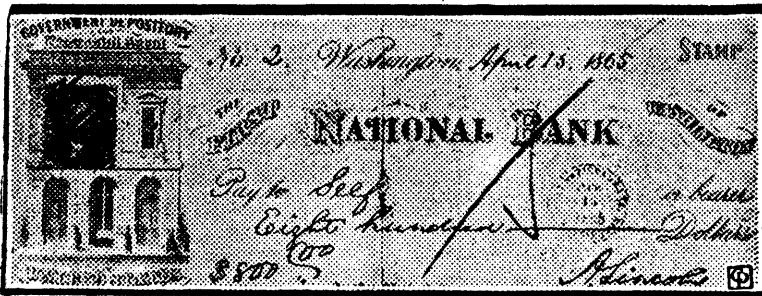 GOVERNMENT DEPOSITORY
No 2. Washington, April 13. 1865 STAMP
THE OF
NATIONAL BANK
Pay to Self or bearer
Eight hundred Dollars
$800 00
A. Lincoln